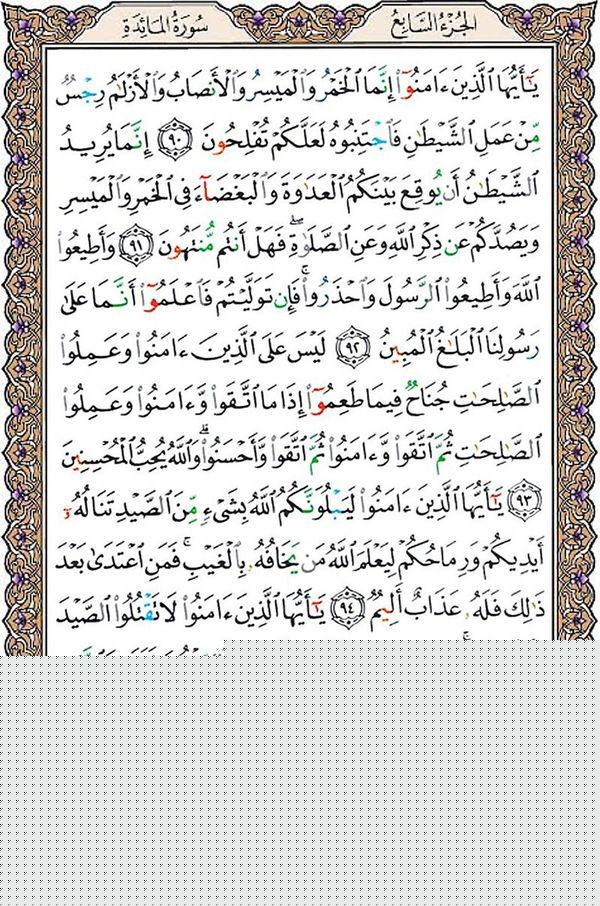 الجزء السابع
سورة المائدة
يَـٰٓأَيُّهَا ٱلَّذِينَ ءَامَنُوٓا۟ إِنَّمَا ٱلْخَمْرُ وَٱلْمَيْسِرُ وَٱلْأَنصَابُ وَٱلْأَزْلَـٰمُ رِجْسٌ
مِّنْ عَمَلِ ٱلشَّيْطَـٰنِ فَٱجْتَنِبُوهُ لَعَلَّكُمْ تُفْلِحُونَ ٩٠ إِنَّمَا يُرِيدُ
ٱلشَّيْطَـٰنُ أَن يُوقِعَ بَيْنَكُمُ ٱلْعَدَٰوَةَ وَٱلْبَغْضَآءَ فِى ٱلْخَمْرِ وَٱلْمَيْسِرِ
وَيَصُدَّكُمْ عَن ذِكْرِ ٱللَّهِ وَعَنِ ٱلصَّلَوٰةِ ۖ فَهَلْ أَنتُم مُّنتَهُونَ ٩١ وَأَطِيعُوا۟
ٱللَّهَ وَأَطِيعُوا۟ ٱلرَّسُولَ وَٱحْذَرُوا۟ ۚ فَإِن تَوَلَّيْتُمْ فَٱعْلَمُوٓا۟ أَنَّمَا عَلَىٰ
رَسُولِنَا ٱلْبَلَـٰغُ ٱلْمُبِينُ ٩٢ لَيْسَ عَلَى ٱلَّذِينَ ءَامَنُوا۟ وَعَمِلُوا۟
ٱلصَّـٰلِحَـٰتِ جُنَاحٌ فِيمَا طَعِمُوٓا۟ إِذَا مَا ٱتَّقَوا۟ وَّءَامَنُوا۟ وَعَمِلُوا۟
ٱلصَّـٰلِحَـٰتِ ثُمَّ ٱتَّقَوا۟ وَّءَامَنُوا۟ ثُمَّ ٱتَّقَوا۟ وَّأَحْسَنُوا۟ ۗ وَٱللَّهُ يُحِبُّ ٱلْمُحْسِنِينَ
٩٣ يَـٰٓأَيُّهَا ٱلَّذِينَ ءَامَنُوا۟ لَيَبْلُوَنَّكُمُ ٱللَّهُ بِشَىْءٍ مِّنَ ٱلصَّيْدِ تَنَالُهُۥٓ
أَيْدِيكُمْ وَرِمَاحُكُمْ لِيَعْلَمَ ٱللَّهُ مَن يَخَافُهُۥ بِٱلْغَيْبِ ۚ فَمَنِ ٱعْتَدَىٰ بَعْدَ
ذَٰلِكَ فَلَهُۥ عَذَابٌ أَلِيمٌ ٩٤ يَـٰٓأَيُّهَا ٱلَّذِينَ ءَامَنُوا۟ لَا تَقْتُلُوا۟ ٱلصَّيْدَ